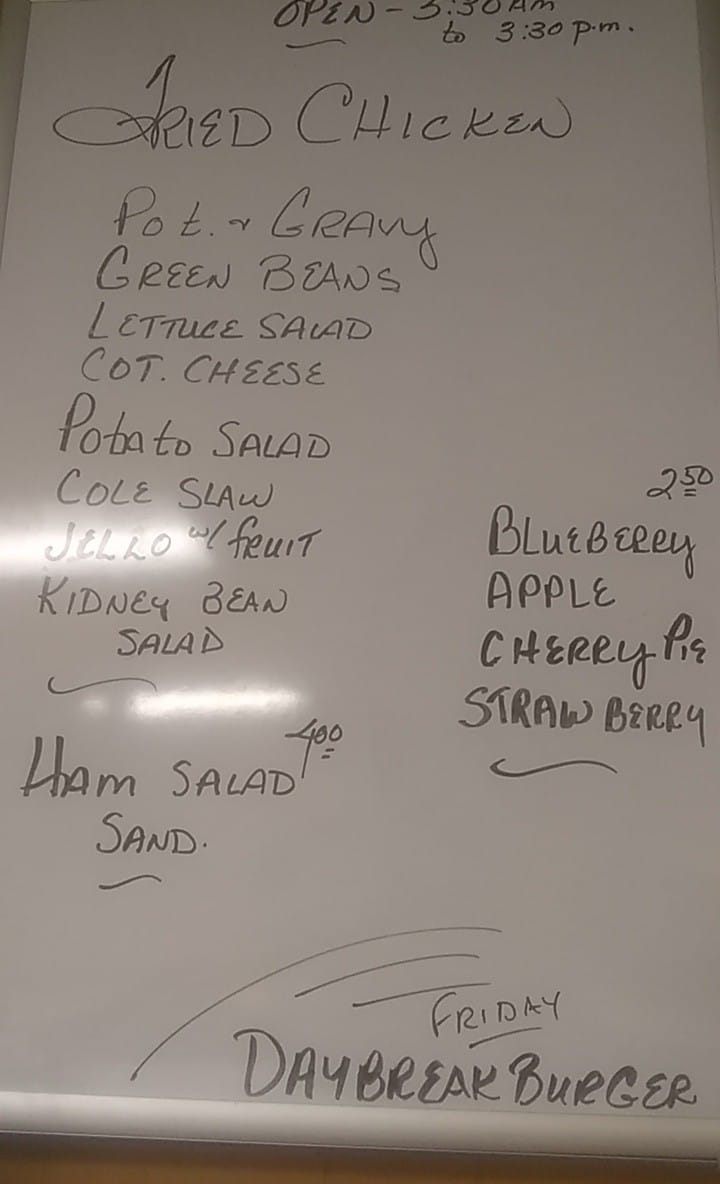 OPEN - 3:30 AM
to 3:30 p.m.
FRIED CHICKEN
Pot. & GRAVY
GREEN BEANS
LETTUCE SALAD
COT. CHEESE
Potato SALAD
COLE SLAW
JELLO w/ fRUIT
KIDNEY BEAN
SALAD
2 50
BLUEBERRY
APPLE
CHERRY PIE
STRAWBERRY
HAM SALAD 4 00
SAND.
FRIDAY
DAYBREAK BURGER